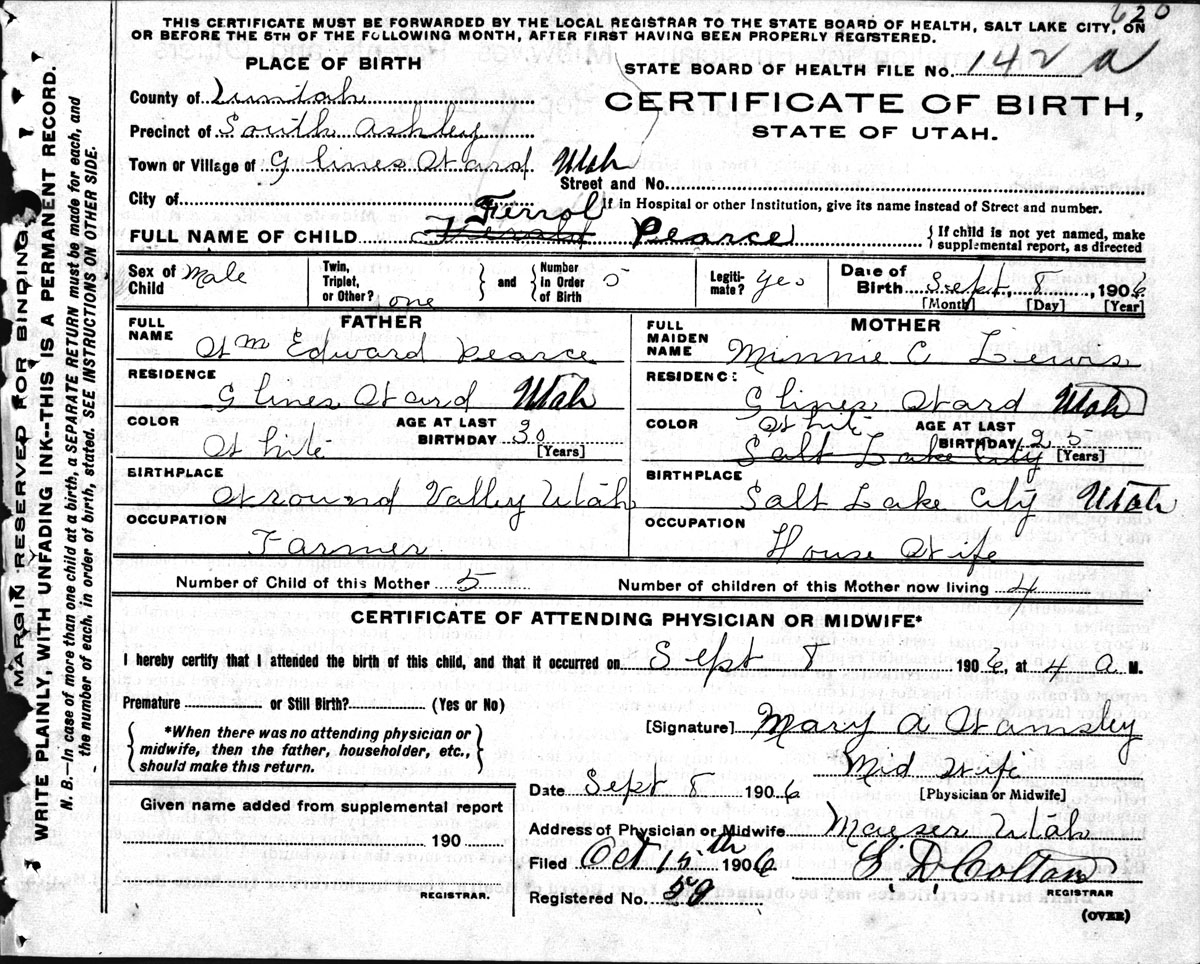 620
THIS CERTIFICATE MUST BE FORWARDED BY THE LOCAL REGISTRAR TO THE STATE BOARD OF HEALTH, SALT LAKE CITY, ON
OR BEFORE THE 5TH OF THE FOLLOWING MONTH, AFTER FIRST HAVING BEEN PROPERLY REGISTERED.
PLACE OF BIRTH
STATE BOARD OF HEALTH FILE NO. 142 a
County of Uintah
CERTIFICATE OF BIRTH,
Precinct of South Ashley
STATE OF UTAH.
Town or Village of Glines Ward Utah
Street and No.
City of
If in Hospital or other Institution, give its name instead of Street and number.
Ferrol
FULL NAME OF CHILD Pearce
If child is not yet named, make
supplemental report, as directed
Sex of Child Male
Twin, Triplet, or Other? one
and
Number In Order of Birth 5
Legiti-mate? Yes
Date of Birth Sept. 8, 1906
[Month] [Day] [Year]
FATHER
MOTHER
FULL NAME Wm Edward Pearce
FULL MAIDEN NAME Minnie C Lewis
RESIDENCE Glines Ward Utah
RESIDENCE Glines Ward Utah
COLOR White
AGE AT LAST BIRTHDAY 30 [Years]
COLOR White
AGE AT LAST BIRTHDAY 25 [Years]
Salt Lake City
BIRTHPLACE Round Valley Utah
BIRTHPLACE Salt Lake City Utah
OCCUPATION Farmer
OCCUPATION House Wife
Number of Child of this Mother 5
Number of children of this Mother now living 4
CERTIFICATE OF ATTENDING PHYSICIAN OR MIDWIFE*
I hereby certify that I attended the birth of this child, and that it occurred on Sept 8 1906, at 4 a M.
Premature or Still Birth? (Yes or No)
*When there was no attending physician or
midwife, then the father, householder, etc.,
should make this return.
[Signature] Mary A Wamsley
Mid Wife
[Physician or Midwife]
Date Sept 8 1906
Given name added from supplemental report
190
REGISTRAR.
Address of Physician or Midwife Maeser Utah
Filed Oct 15th 1906
REGISTRAR
Registered No. 59
(OVER)
MARGIN RESERVED FOR BINDING.
WRITE PLAINLY, WITH UNFADING INK--THIS IS A PERMANENT RECORD.
N. B.—In case of more than one child at a birth, a SEPARATE RETURN must be made for each, and
the number of each, in order of birth, stated. SEE INSTRUCTIONS ON OTHER SIDE.